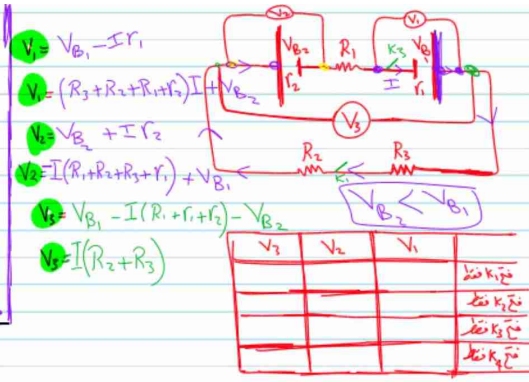 V₁ = V_B₁ - I r₁
V₁ = (R₃+R₂+R₁+r₂)I + V_B₂
V₂ = V_B₂ + I r₂
V₂ = -I(R₁+R₂+R₃+r₁) + V_B₁
V₃ = V_B₁ - I(R₁+r₁+r₂) - V_B₂
V₃ = I(R₂+R₃)
V₂ V₁
V_B₂ R₁ K₃ V_B₁
r₂ I r₁
V₃
R₂ K₁ R₃
V_B₂ < V_B₁
V₃ V₂ V₁
فتح K₁ فقط
فتح K₂ فقط
فتح K₃ فقط
فتح K₄ فقط